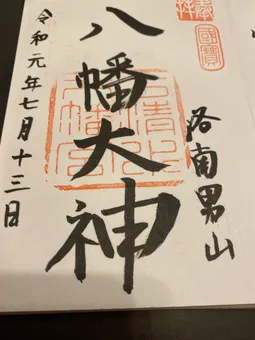 奉拝
國寳
洛南男山
八幡大神
石清水
八幡宮
令和元年七月十三日